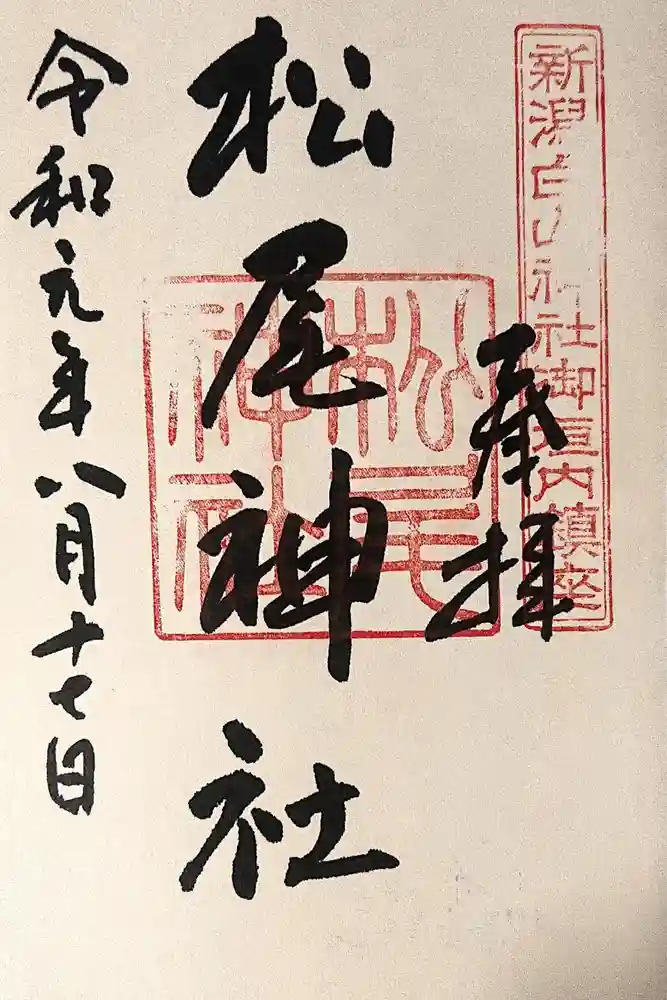 新潟白山神社御垣内鎮座
奉拝
松尾神社
松尾
神社
令和元年八月十七日